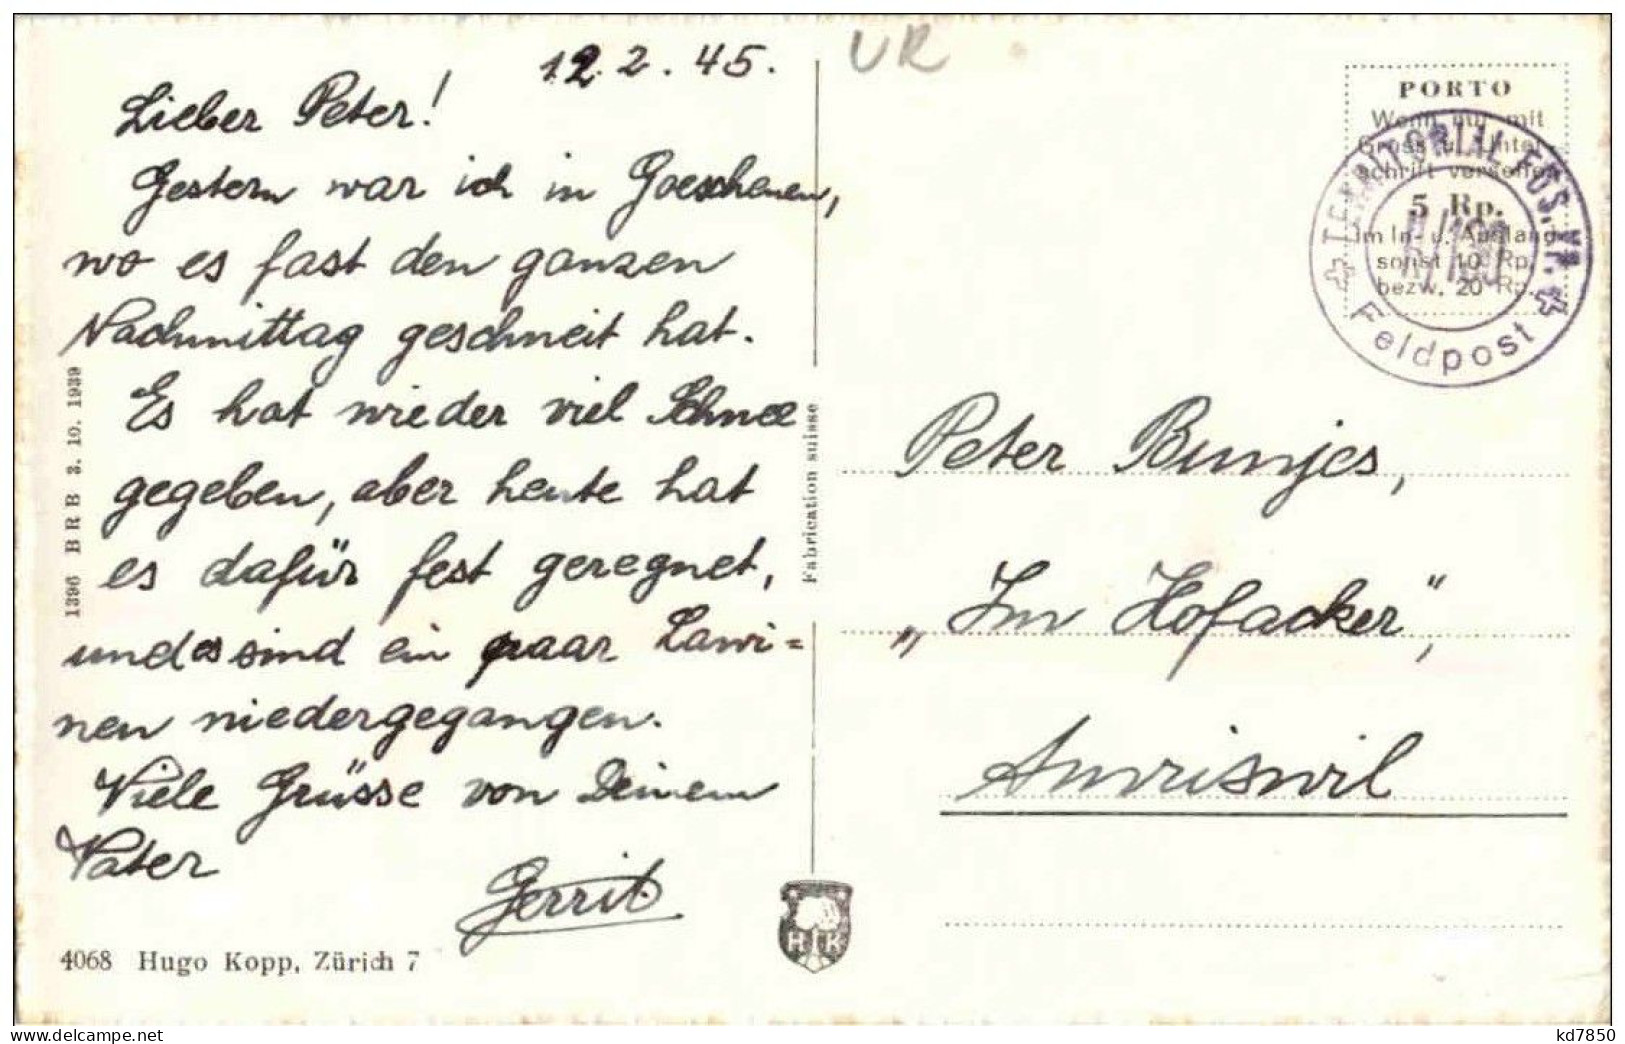 12.2.45.
UR
Lieber Peter!
Gestern war ich in Goeschenen,
wo es fast den ganzen
Nachmittag geschneit hat.
Es hat wieder viel Schnee
gegeben, aber heute hat
es dafür fest geregnet,
und es sind ein paar Lawi=
nen niedergegangen.
Viele Grüsse von Deinem
Vater
Gerrit
4068 Hugo Kopp, Zürich 7
1396 B R B 3. 10. 1939
Fabrication suisse
H K
PORTO
Wenn nur mit
Gruss u. Unter-
schrift versehen
5 Rp.
im In- u. Ausland
sonst 10 Rp.
bezw. 20 Rp.
TERRITORIAL FÜS.
Feldpost
Peter Bunjes,
„Im Hofacker",
Amriswil
kd7850